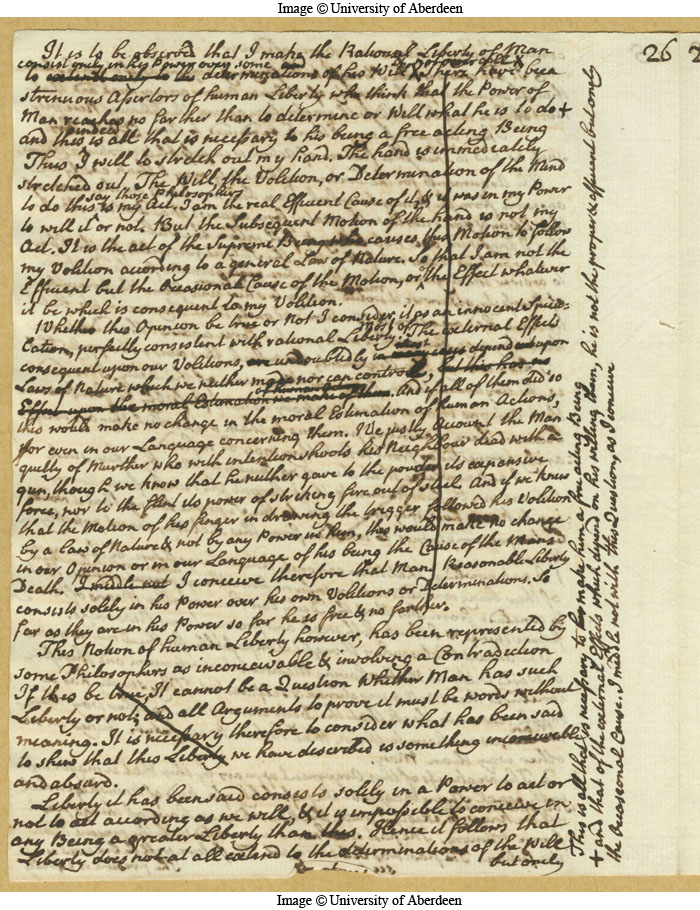 Image © University of Aberdeen
26
It is to be observed that I make the Rational Liberty of Man
consist only in his Power over some and not over all
to extend only to the determinations of his Will. There have been
strenuous Assertors of human Liberty who think that the Power of
Man reaches no farther than to determine or Will what he is to do +
and this indeed is all that is necessary to his being a free acting Being
Thus I will to stretch out my hand. The hand is immediatly
stretched out, The Will the Volition, or Determination of the Mind
say those Philosophers
to do this is my Act. I am the real Efficient Cause of it, & it was in my Power
to will it or not. But the Subsequent Motion of the hand is not my
Act. It is the act of the Supreme Being who causes this Motion to follow
my Volition according to a general Law of Nature. So that I am not the
Efficient but the Occasional Cause of the Motion, or the Effect whatever
it be which is consequent to my Volition.
Whether this Opinion be true or Not I consider it as an innocent Specu-
lation, perfectly consistent with rational Liberty. Most of The external Effects
consequent upon our Volitions, are undoubtedly in most cases depend upon
Laws of Nature which we neither made nor can controul, but this has no
Effect upon the moral Estimation we make of them. And if all of them did so
of human Actions
this would make no change in the moral Estimation of human Actions,
nor even in our Language concerning them. We justly account the Man
guilty of Murther who with intention shoots his Neighbour dead with a
gun, though we know that he neither gave to the powder its expansive
force, nor to the flint its power of striking fire out of steel. And if we knew
that the Motion of his finger in drawing the trigger followed his Volition
by a law of Nature & not by any Power in him, this would make no change
in our Opinion or in our Language of his being the Cause of the Mans
Death. I middle not I conceive therefore that Mans Reasonable Liberty
consists solely in his Power over his own Volitions or Determinations. So
far as they are in his Power so far he is free & no farther.
This Notion of human Liberty however, has been represented by
some Philosophers as inconceivable & involving a Contradiction
If this be true, It cannot be a Question Whether Man has such
Liberty or not; and all Arguments to prove it must be words without
meaning. It is necessary therefore to consider what has been said
to shew that this Liberty we have described is something inconceivable
and absurd.
Liberty it has been said consists solely in a Power to act or
not to act according as we will, & it is impossible to conceive in
any Being a greater Liberty than this. Hence it follows that
Liberty does not at all extend to the determinations of the Will
but only
This is all that is necessary to make him a free acting Being
+ and that of the external Effects which depend on his willing them, he is not the proper & efficient but only
the Occasional Cause. I middle not with this Question, as I conceive
Image © University of Aberdeen